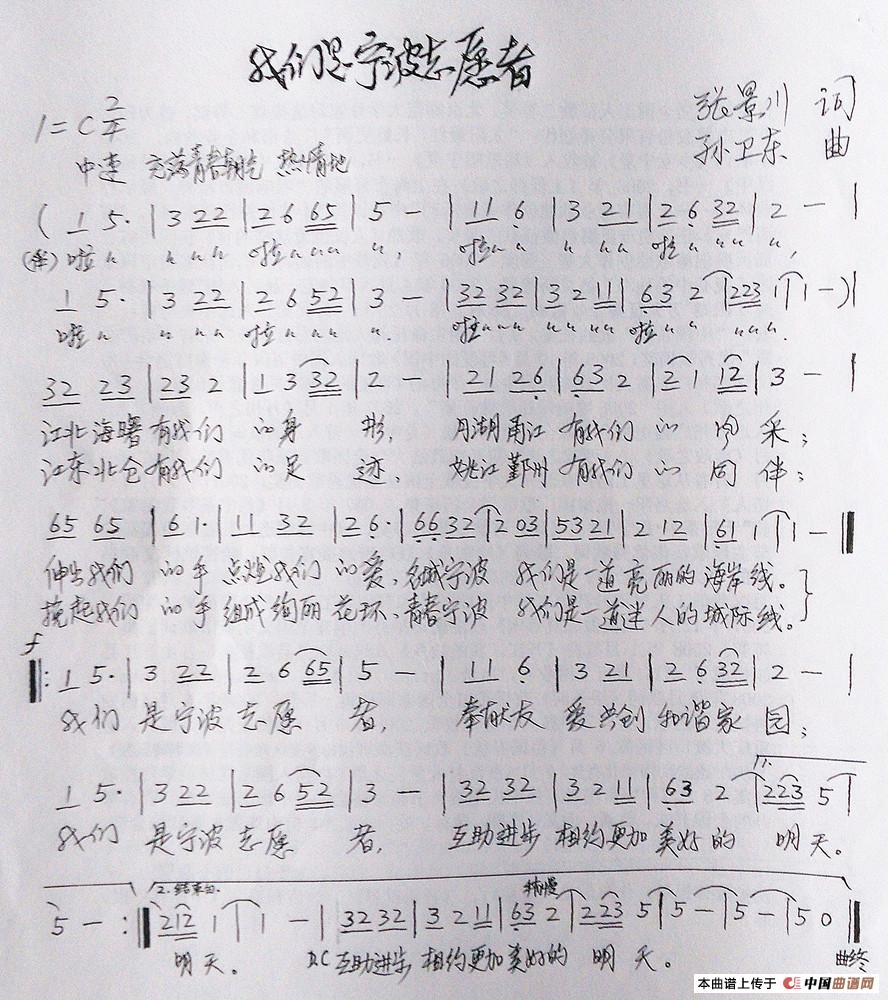 我们是宁波志愿者
1=C 2/4
张景川 词
孙卫东 曲
中速 充满青春朝气 热情地
( 1 5· | 3 22 | 2 6 65 | 5 — | 11 6 | 3 21 | 2 6 32 | 2 — |
(伴) 啦 〃 〃 〃 〃 啦 〃 〃 〃 〃, 啦 〃 〃 〃 〃 〃 啦 〃 〃 〃 〃,
1 5· | 3 22 | 2 6 52 | 3 — | 32 32 | 3 2 11 | 63 2 | 223 1 | 1 —) |
啦 〃 〃 〃 〃 啦 〃 〃 〃 〃. 啦 〃 〃 〃 〃 〃 〃 〃 啦 〃 〃 〃 〃 〃 〃.
32 23 | 23 2 | 1 3 32 | 2 — | 21 26 | 63 2 | 2 1 12 | 3 — |
江北海曙有我们 的身 形, 月湖甬江 有我们 的 风 采;
江东北仑有我们 的足 迹, 姚江鄞州 有我们 的 同 伴;
65 65 | 6 1· | 11 32 | 2 6· | 66 32 | 2 03 | 53 21 | 2 12 | 61 1 | 1 — ‖
伸出我们 的手 点燃我们 的爱, 名城宁波 我们是一道亮丽的海岸线。
挽起我们 的手 组成绚丽 花环、青春宁波 我们是一道迷人的城际线。
f
‖: 1 5· | 3 22 | 2 6 65 | 5 — | 11 6 | 3 21 | 2 6 32 | 2 — |
我们 是宁波 志愿 者, 奉献友 爱共创 和谐家 园;
1.
1 5· | 3 22 | 2 6 52 | 3 — | 32 32 | 3 2 11 | 63 2 | 223 5 |
我们 是宁波 志愿 者, 互助进步 相约更加 美好的 明天。
2. 结束句. 稍慢
5 — :‖ 212 1 | 1 — | 32 32 | 3 2 11 | 63 2 | 223 5 | 5 — | 5 — | 5 0 ‖
明天。 D.C 互助进步 相约更加美好的 明 天。 曲终
本曲谱上传于 中国曲谱网